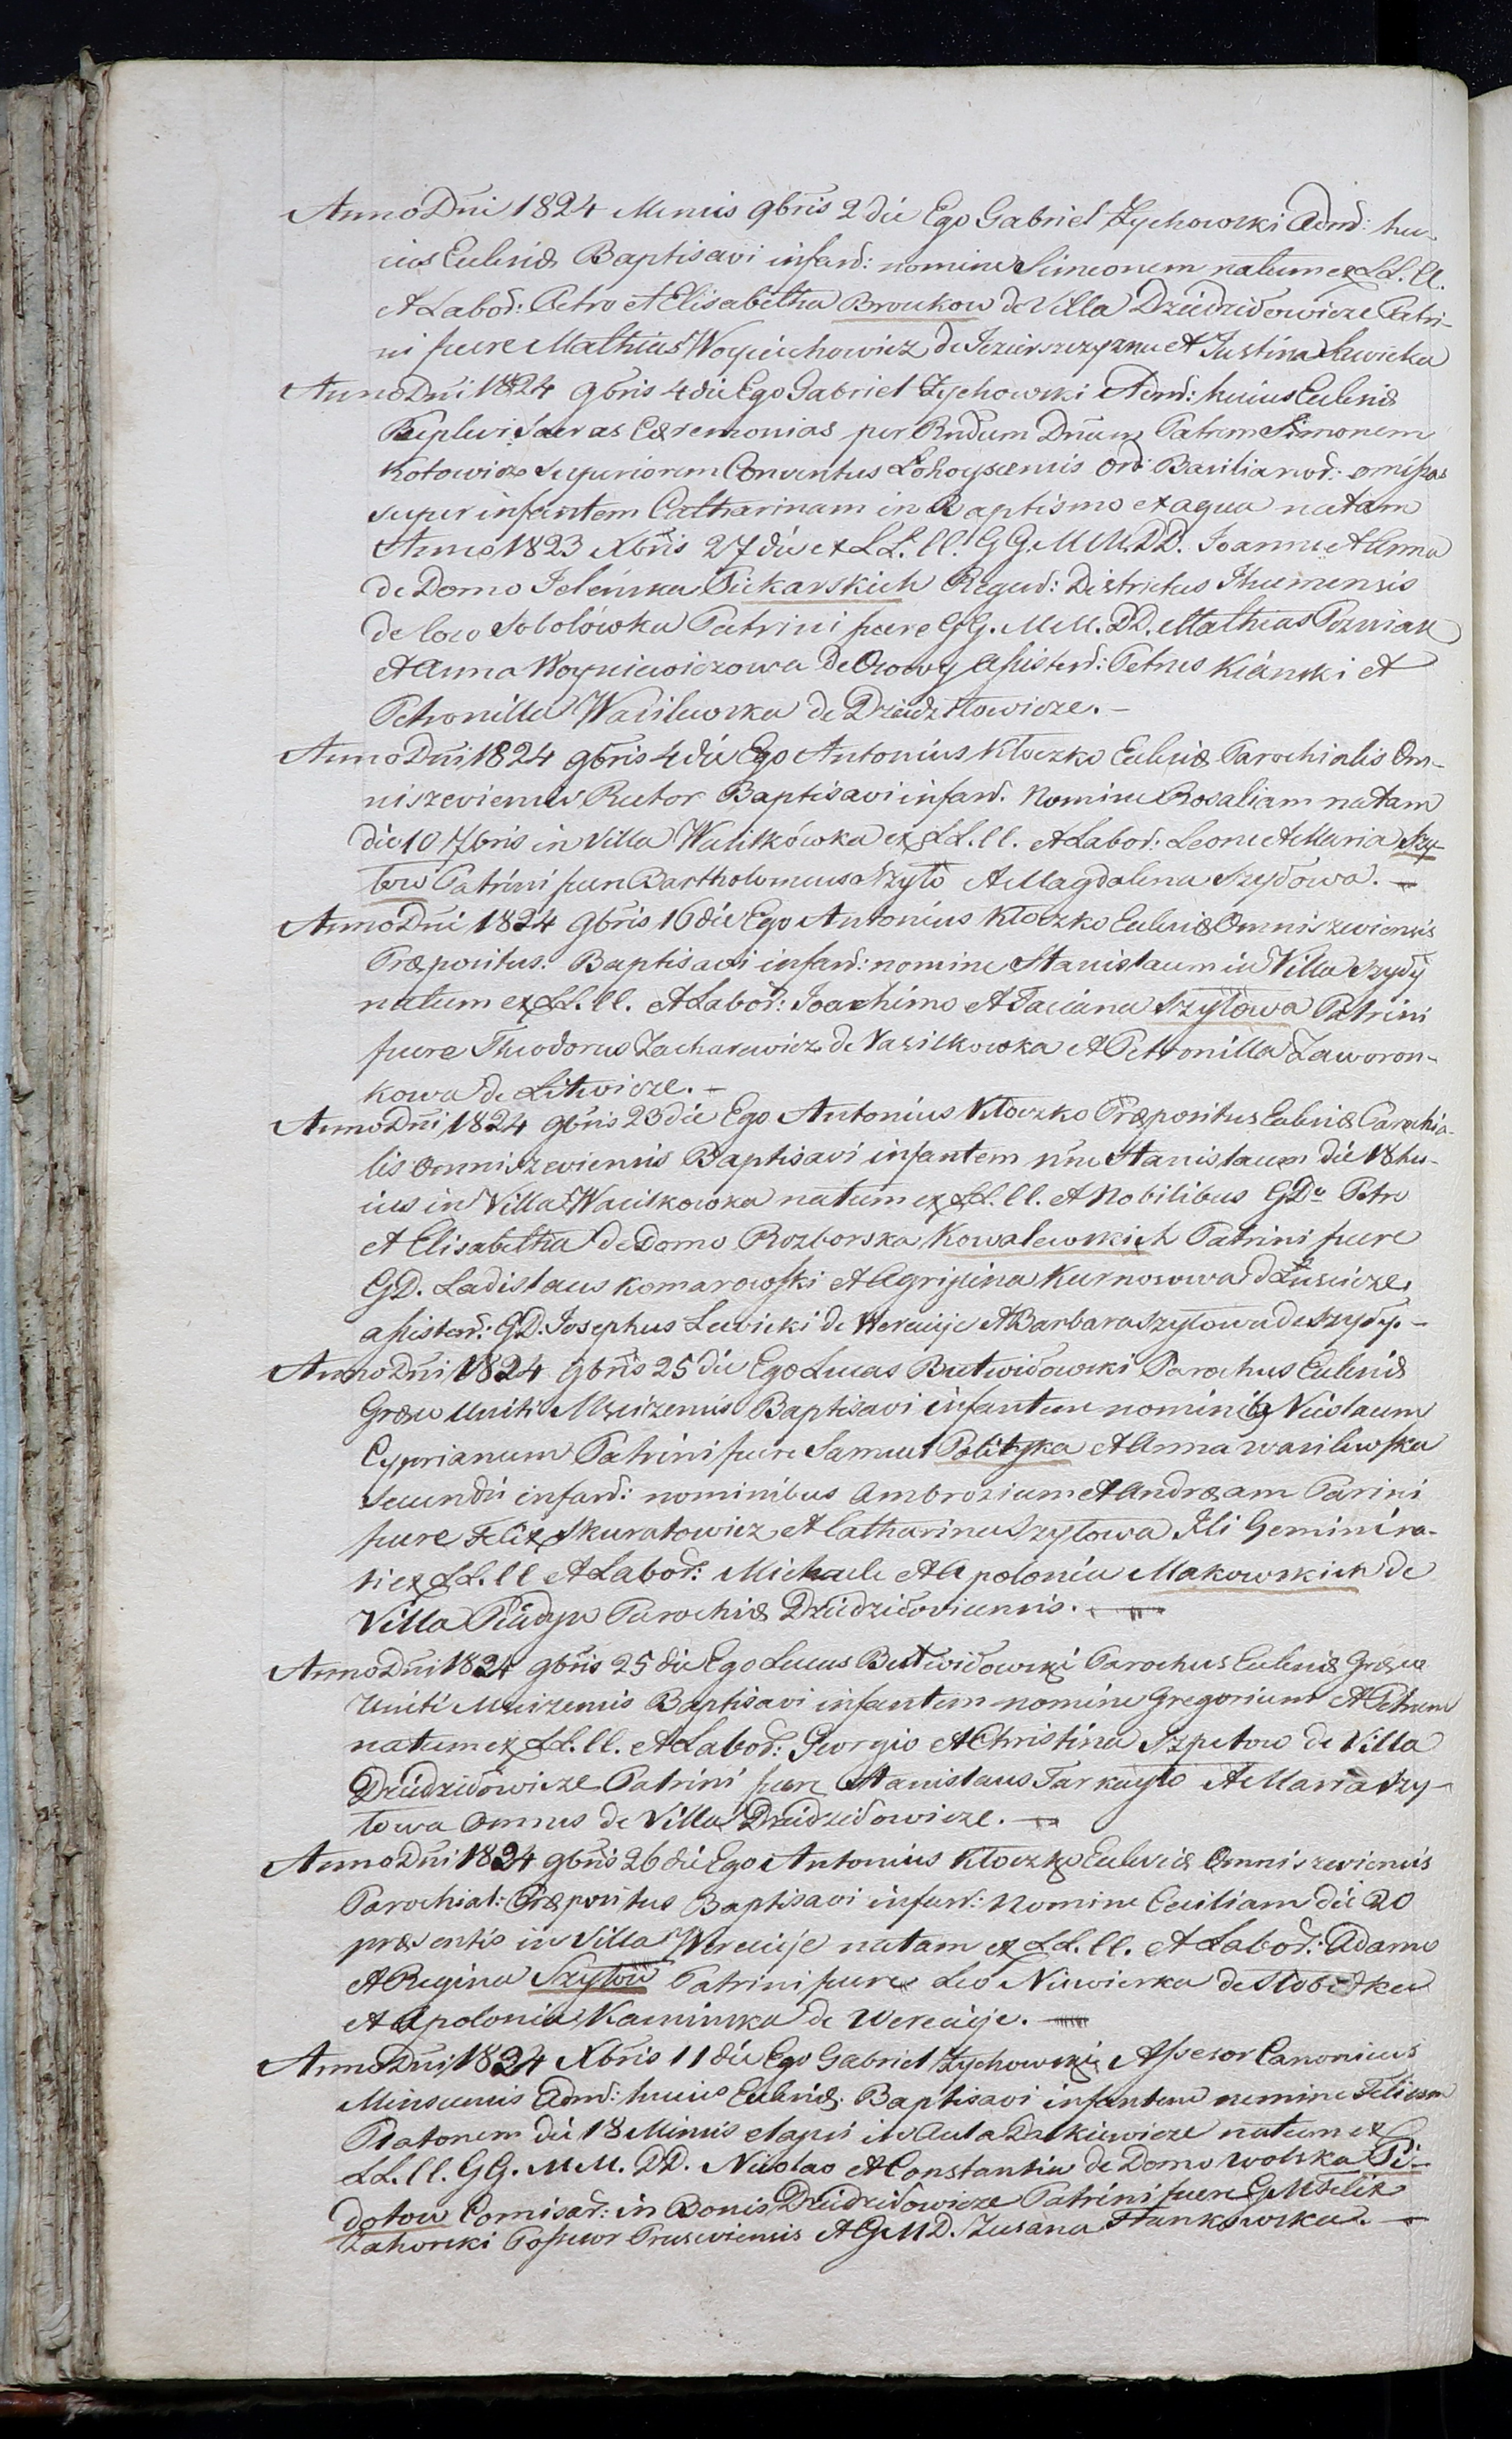 Anno Dni 1824 Mensis 9bris 2 die Ego Gabriel Zychowski Admđ: hu-
ius Eccleniæ Baptisavi infanđ: nomine Simeonem natum ex LL. ll.
et Labođ: Petro et Elisabetha Broukow de Villa Dziedziłowicze Patri-
ni fuere Mathias Woyciechowicz de Jezierszczyzna et Justina Lewicka
Anno Dni 1824 9bris 4 die Ego Gabriel Zychowski Admđ: huius Eccleniæ
Suplevi Sacras Cæremonias per Rndum Dnum Patrem Simonem
Kotowicz Superiorem Conventus Łohoyscensis Orđ: Basilianođ: omissas
super infantem Catharinam in Baptismo ex aqua natam
Anno 1823 Xbris 27 die ex LL. ll. GG. MM. DD. Joanne et Anna
de Domo Jeleńska Piekarskich Regenđ: Districtus Ihumensis
de loco Sobolówka Patrini fuere GG. MM. DD. Mathias Pozniak
et Anna Woyniewiczowa de Ozowy Assistenđ: Petrus Kłański et
Petronilla Wasilewska de Dziedziłowicze. -
Anno Dni 1824 9bris 4 die Ego Antonius Kłoczko Eccleniæ Parochialis Om-
niszeviensis Rector Baptisavi infanđ. Nomine Rosaliam natam
die 10 7bris in Villa Wasilkówka ex LL. ll. et Labođ: Leone et Maria Szy-
tow Patrini fuere Bartholomeus Szyło et Magdalena Szydowa. -
Anno Dni 1824 9bris 16 die Ego Antonius Kłoczko Eccleniæ Omniszeviensis
Præpositus. Baptisavi infanđ: nomine Stanisłaum in Villa Szyły
natum ex LL. ll. et Labođ: Joachimo et Taciana Szyłowa Patrini
fuere Theodorus Zacharewicz de Vasilkowka et Petronilla Zaworon-
kowa de Litwicze. -
Anno Dni 1824 9bris 23 die Ego Antonius Kłoczko Præpositus Eccleniæ Parochia-
lis Omniszeviensis Baptisavi infantem nne Stanislaum die 18 hu-
ius in Villa Wasilkowka natum ex LL. ll. et Nobilibus GDo Petro
et Elisabetha de Domo Rozborska Kowalewskich Patrini fuere
GD. Ladislaus Komarowski et Agripina Kurnosowa d Łusicze
assistenđ: GD. Josephus Lewicki de Wereicije et Barbara Szyłowa de Szyły. -
Anno Dni 1824 9bris 25 die Ego Lucas Butwiłowski Parochus Eccleniæ
Græco Uniti Mściżensis Baptisavi infantem nominib9 Nicolaum
Cyprianum Patrini fuere Samuel Polityka et Anna Wasilewska
Secundu infanđ: nominibus Ambrosium et Andræam Parini
fuere Felix Skuratowicz et Catharina Szyłowa Ili Gemini na-
ti ex LL. ll et Labođ: Michaele et Apolonia Makowskich de
Villa Pładyn Parochiæ Dziedziłoviensis. -
Anno Dni 1824 9bris 25 die Ego Lucas Butwiłowski Parochus Eccleniæ Græco
Uniti Mściżensis Baptisavi infantem nomine Gregorium et Petrum
natum ex LL. ll. et Labođ: Georgio et Christina Szpetow de Villa
Dziedziłowicze Patrini fuere Stanislaus Tarkayło et Maria Szy-
towa Omnes de Villa Dziedziłowicze. -
Anno Dni 1824 9bris 26 die Ego Antonius Kłoczko Eccleniæ Omniszeviensis
Parochial: Præpositus Baptisavi infanđ: Nomine Ceciliam die 20
præsentis in Villa Wereicije natam ex LL. ll. et Labođ: Adamo
et Regina Szyłow Patrini fuere Leo Niewierka de Słobodka
et Apolonia Kaminska de Wereicije. -
Anno Dni 1824 Xbris 11 die Ego Gabriel Zychowski Assesor Canonicus
Minscensis Admđ: huius Eccleniæ Baptisavi infantem nomine Felicem
Platonem die 18 Mensis elapsi in Aula Dalkiewicze natum ex
LL. ll. GG. MM. DD. Nicolao et Constantia de Domo Wolska Pi-
dotow Comisađ: in Bonis Dziedziłowicze Patrini fuere GM Felix
Zahorski Possesor Prusieviensis et GMD. Zusana Stankowska. -